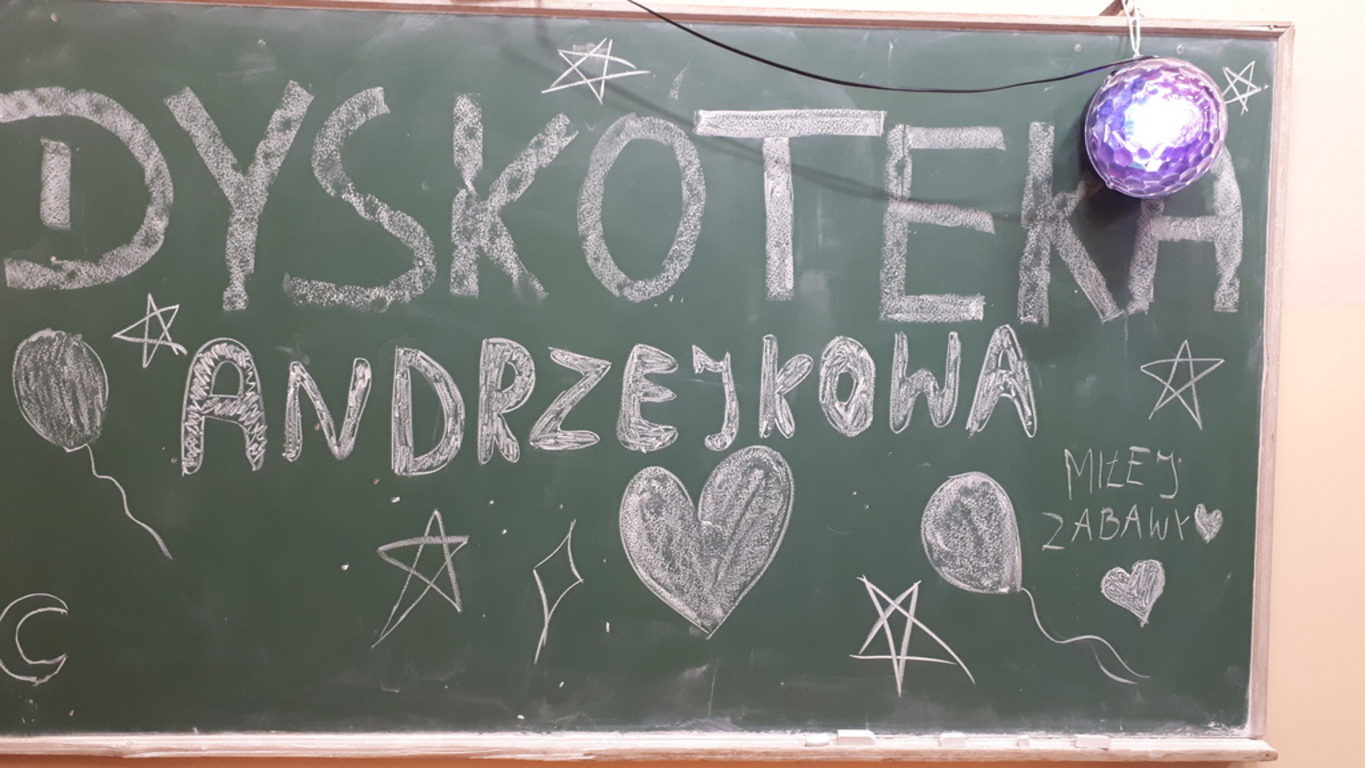 DYSKOTEKA
ANDRZEJKOWA
MIŁEJ
ZABAWY